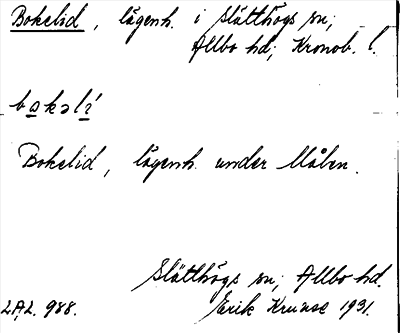 Bokelid, lägenh. i Slätthögs sn,
Allbo hd, Kronob. l.
bokəlí
Bokelid, lägenh. under Målen.
Slätthögs sn, Allbo hd.
L.A.L. 988. Erik Kruuse 1931.